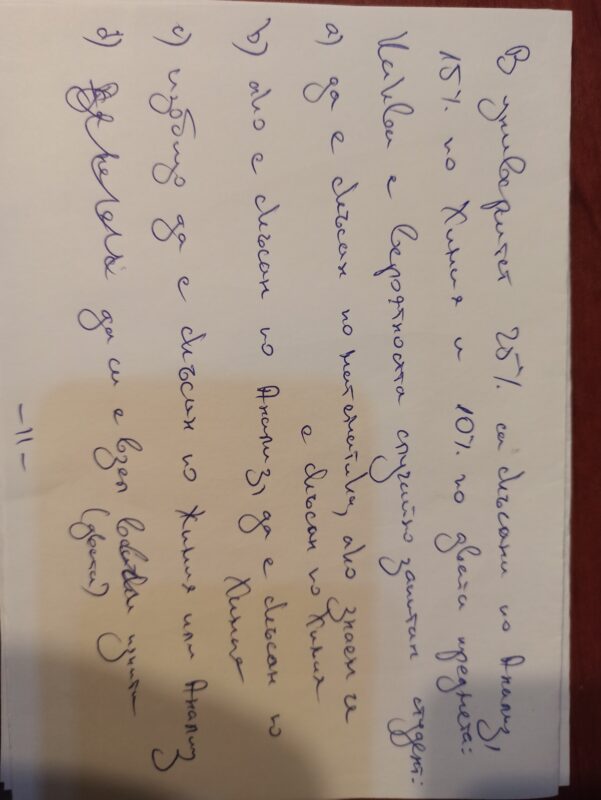 В университет 25% са скъсани по Анализ,
15% по Химия и 10% по двата предмета:
Каква е вероятността случайно запитан студент:
a) да е скъсан по математика, ако знаем че
е скъсан по Химия
b) ако е скъсан по Анализ, да е скъсан по
Химия
c) изобщо да е скъсан по Химия или Анализ
d) да си е взел изпити
(двата)
- 11 -